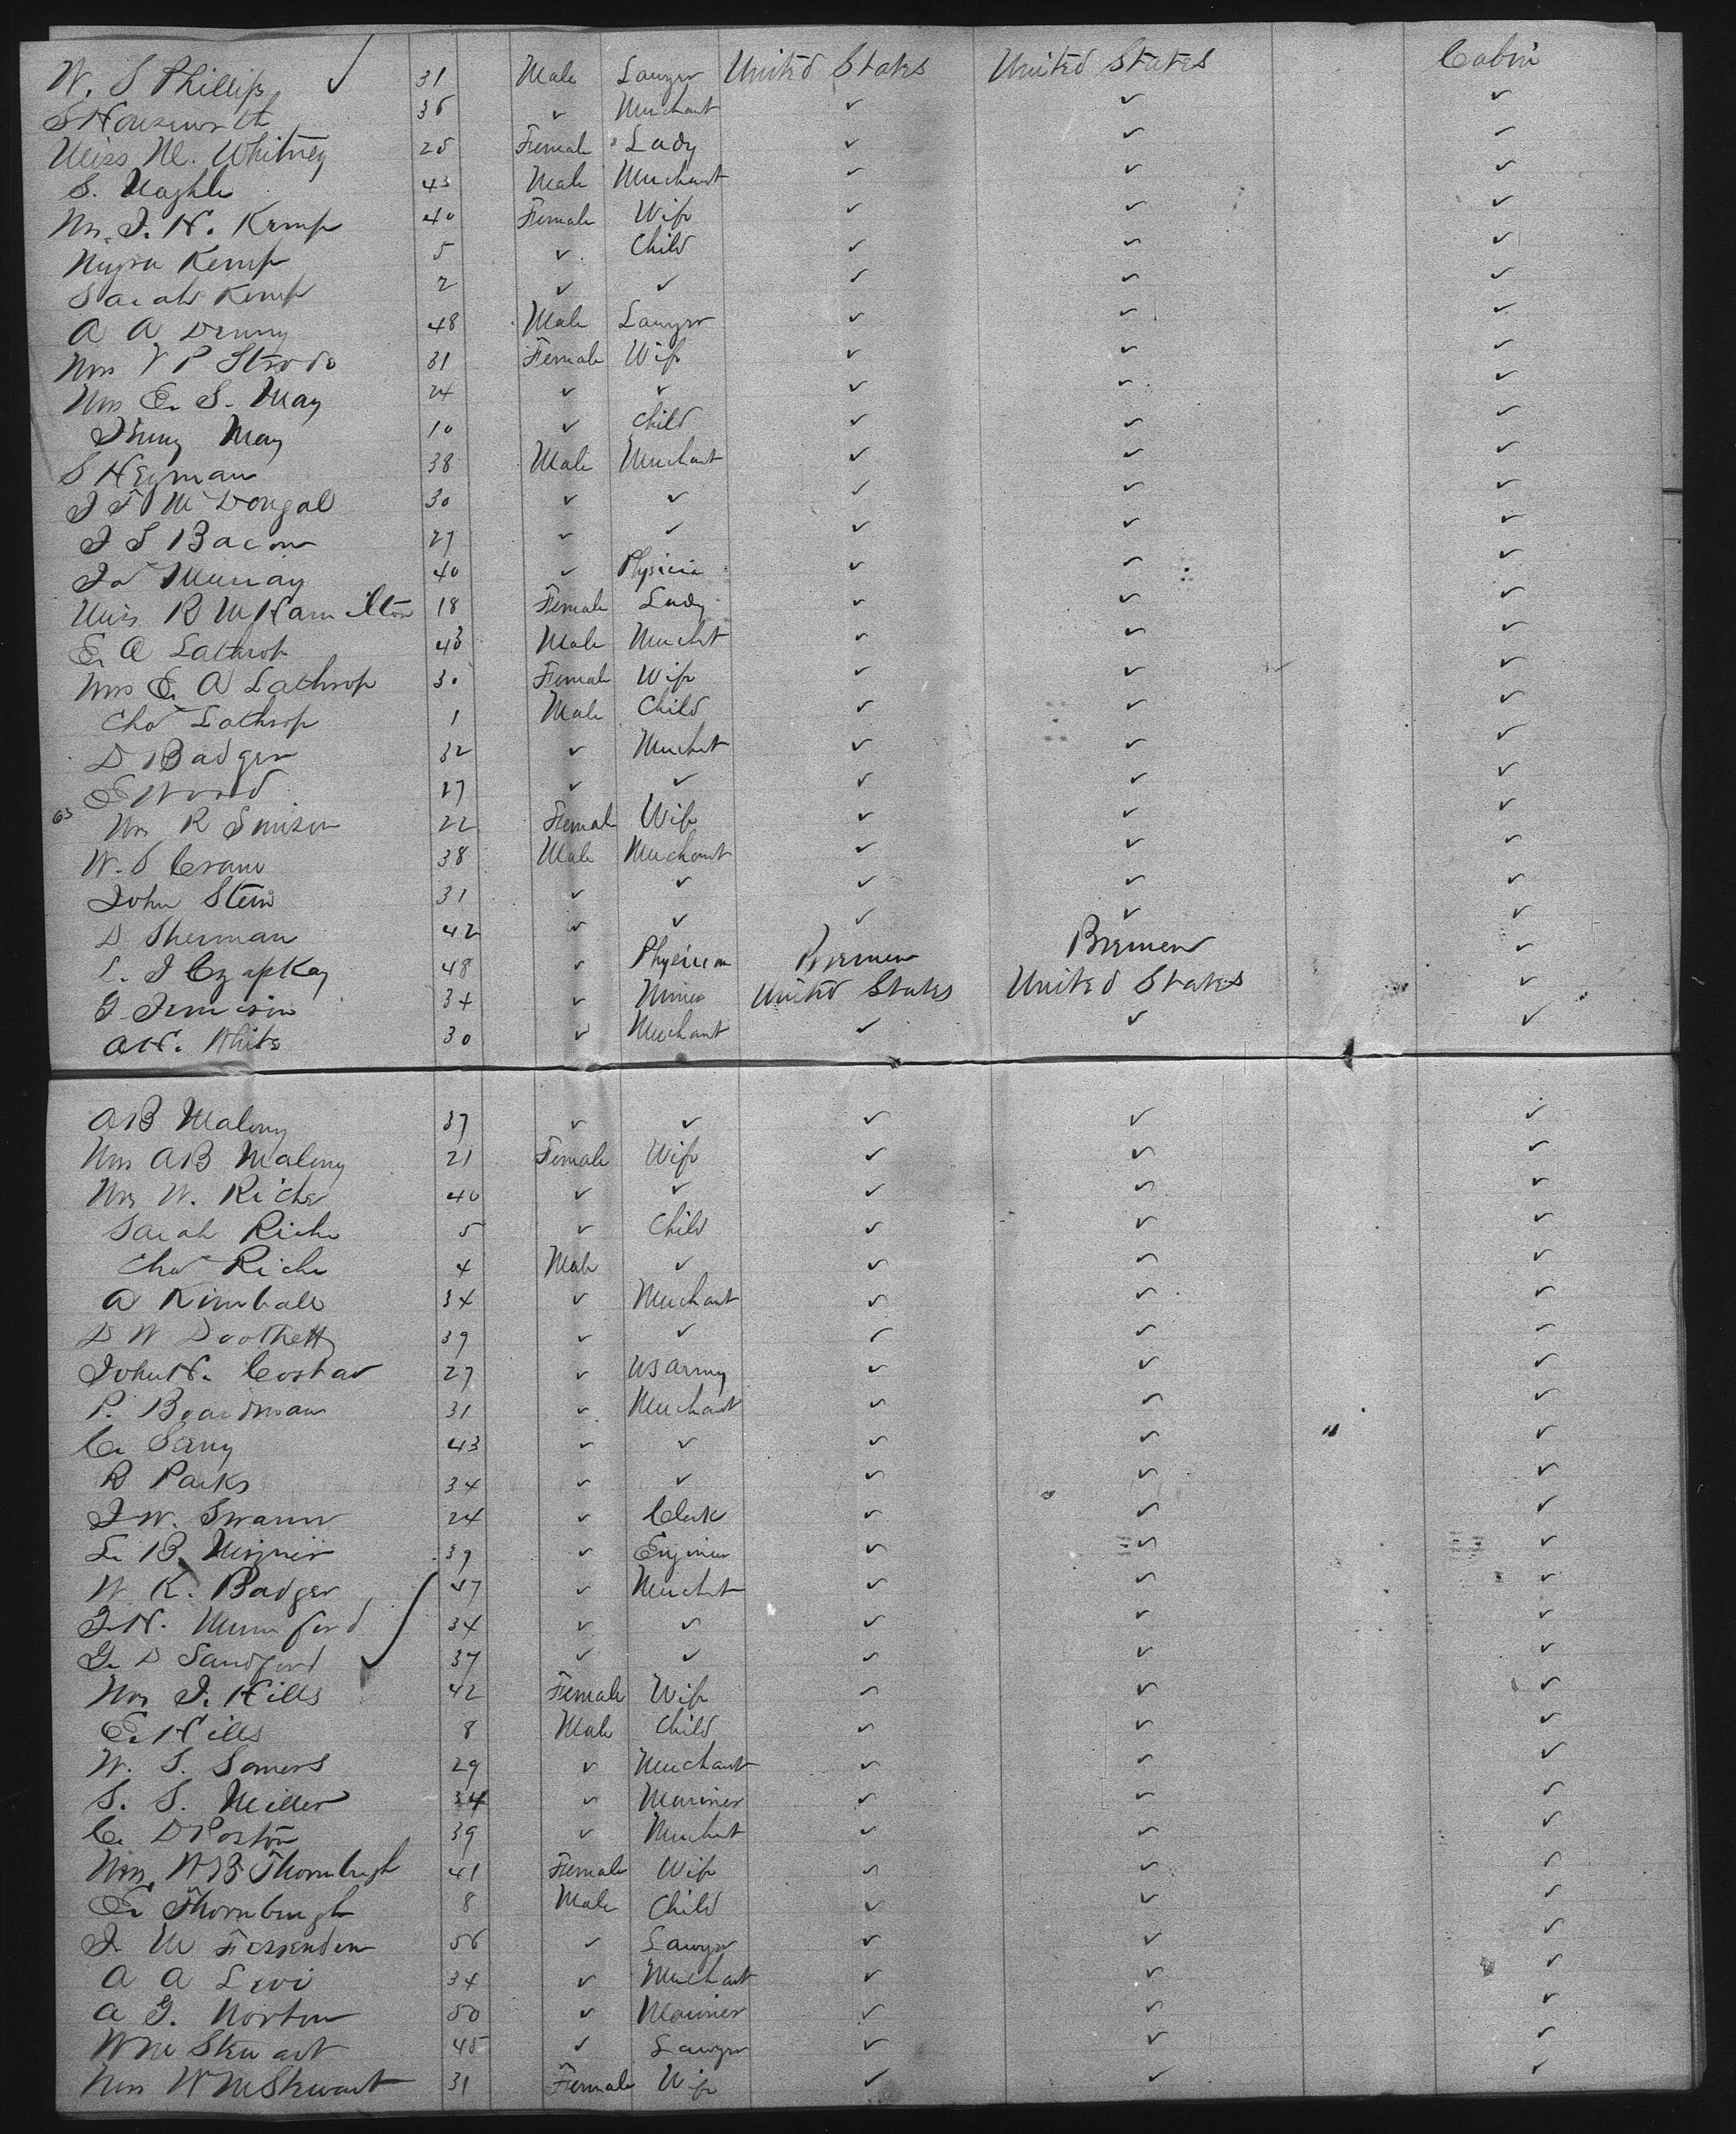 W. S Phillips ✓ 31 Male Lawyer United States United States Cabin
S Housworth 36 ✓ Merchant ✓ ✓ ✓
Miss M. Whitney 25 Female Lady ✓ ✓ ✓
S. 43 Male Merchant ✓ ✓ ✓
Mrs J. H. Kemp 40 Female Wife ✓ ✓ ✓
Kemp 5 ✓ Child ✓ ✓ ✓
Sarah Kemp 2 ✓ ✓ ✓ ✓ ✓
A A Denny 48 Male Lawyer ✓ ✓ ✓
Mrs V P Strode 31 Female Wife ✓ ✓ ✓
Mrs E. S. May 24 ✓ ✓ ✓ ✓ ✓
Jenny May 10 ✓ Child ✓ ✓ ✓
S Heyman 38 Male Merchant ✓ ✓ ✓
J F McDougal 30 ✓ ✓ ✓ ✓ ✓
J S Bacon 27 ✓ ✓ ✓ ✓ ✓
Js Murray 40 ✓ Physicia ✓ ✓ ✓
Miss R M Hamilton 18 Female Lady ✓ ✓ ✓
E. A Lathrop 43 Male Mercht ✓ ✓ ✓
Mrs E. A Lathrop 30 Female Wife ✓ ✓ ✓
Chas Lathrop 1 Male Child ✓ ✓ ✓
D Badger 32 ✓ Mercht ✓ ✓ ✓
E Wood 27 ✓ ✓ ✓ ✓ ✓
63 Mrs R Simison 22 Female Wife ✓ ✓ ✓
W. S Crane 38 Male Merchant ✓ ✓ ✓
John Stein 31 ✓ ✓ ✓ ✓ ✓
D Sherman 42 ✓ ✓ ✓ ✓ ✓
L. J Czapkay 48 ✓ Physician Bremen Bremen ✓
G Jemison 34 ✓ Miner United States United States ✓
A H. White 30 ✓ Merchant ✓ ✓ ✓
A B Malony 37 ✓ ✓ ✓ ✓ ✓
Mrs A B Malony 21 Female Wife ✓ ✓ ✓
Mrs W. Riche 40 ✓ ✓ ✓ ✓ ✓
Sarah Riche 5 ✓ Child ✓ ✓ ✓
Chas Riche 4 Male ✓ ✓ ✓ ✓
A Kimball 34 ✓ Merchant ✓ ✓ ✓
D W Doothett 39 ✓ ✓ ✓ ✓ ✓
John H. Costar 27 ✓ US Army ✓ ✓ ✓
P. Boardman 31 ✓ Merchant ✓ ✓ ✓
C. 43 ✓ ✓ ✓ ✓ ✓
R Parks 34 ✓ ✓ ✓ ✓ ✓
J W. Swann 24 ✓ Clerk ✓ ✓ ✓
L. B. Mizner 39 ✓ Engineer ✓ ✓ ✓
W K. Badger 47 ✓ Mercht ✓ ✓ ✓
J. H. Mumford 34 ✓ ✓ ✓ ✓ ✓
G. D Sandford ✓ 37 ✓ ✓ ✓ ✓ ✓
Mrs J. Hills 42 Female Wife ✓ ✓ ✓
E. Hills 8 Male Child ✓ ✓ ✓
W. S. Somers 29 ✓ Merchant ✓ ✓ ✓
S. S. Miller 34 ✓ Mariner ✓ ✓ ✓
C. D Poston 39 ✓ Mercht ✓ ✓ ✓
Mrs. W B Thornburgh 41 Female Wife ✓ ✓ ✓
E. Thornburgh 8 Male Child ✓ ✓ ✓
J. M Fessenden 56 ✓ Lawyer ✓ ✓ ✓
A A Levi 34 ✓ Merchant ✓ ✓ ✓
A G. Norton 50 ✓ Mariner ✓ ✓ ✓
W M Stewart 45 ✓ Lawyer ✓ ✓ ✓
Mrs W M Stewart 31 Female Wife ✓ ✓ ✓